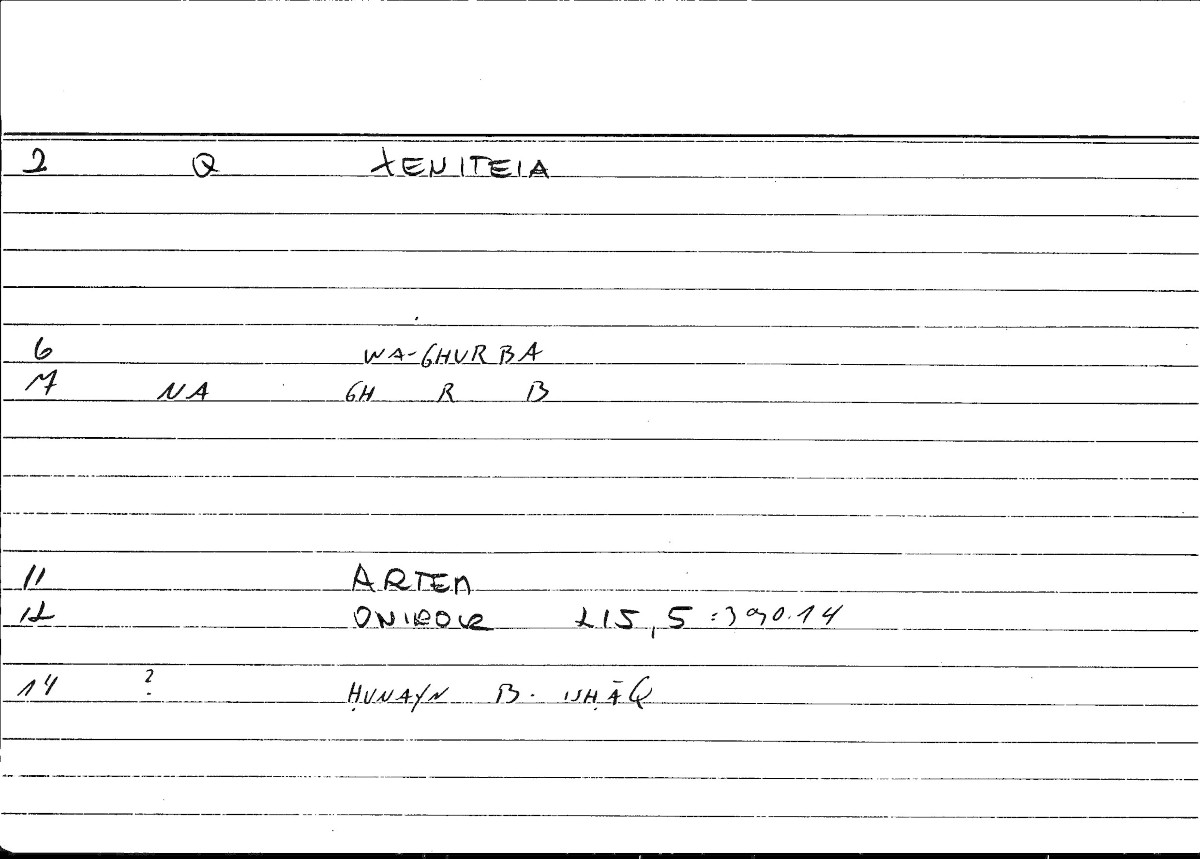 2 Q XENITEIA
6 WA-GHURBA
7 NA GH R B
11 ARTEM
12 ONIROCR 215,5 :390.14
14 ? ḤUNAYN B. ISḤĀQ